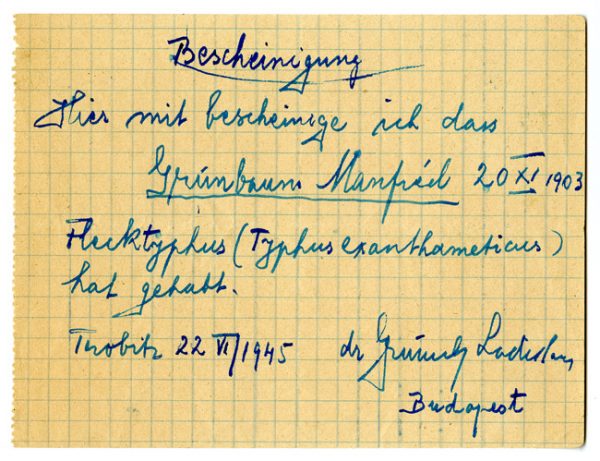 Bescheinigung
Hier mit bescheinige ich dass
Grünbaum Manfréd 20 XI 1903
Flecktyphus (Typhus exanthameticus)
hat gehabt.
Trobitz 22 VI/1945 dr
Budapest